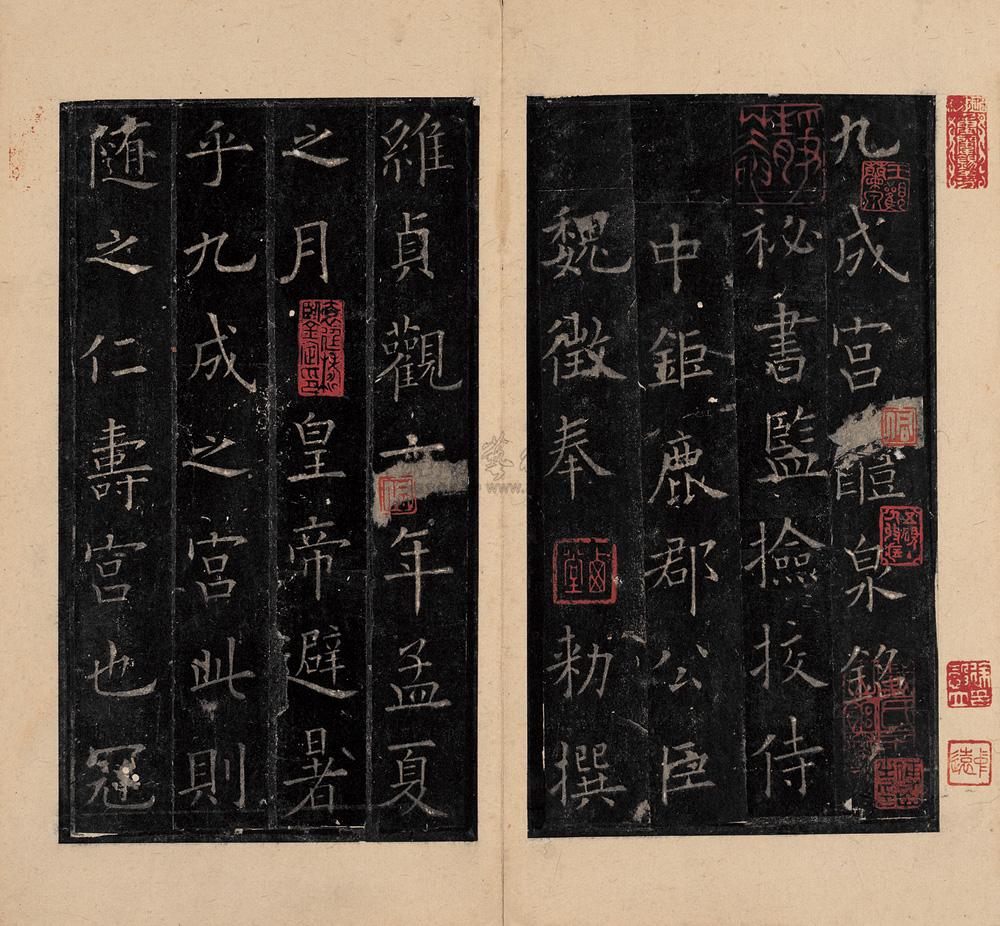 九成宮醴泉銘
祕書監撿挍侍
中鉅鹿郡公臣
魏徵奉
勑撰
維貞觀六年孟夏
之月
皇帝避暑
乎九成之宮此則
随之仁壽宮也冠